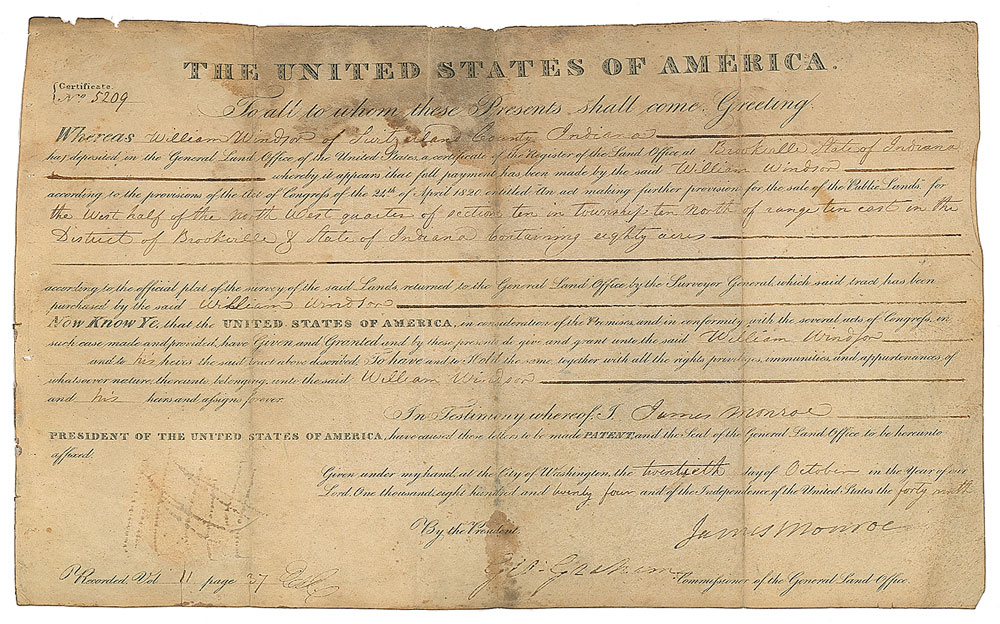 THE UNITED STATES OF AMERICA.
Certificate
No. 5209
To all to whom these Presents shall come, Greeting.
Whereas William Windsor of Switzerland County Indiana
has deposited in the General Land Office of the United States, a certificate of the Register of the Land Office at Brookville State of Indiana
whereby it appears that full payment has been made by the said William Windsor
according to the provisions of the Act of Congress of the 24th of April 1820 entitled An act making further provision for the sale of the Public Lands, for
the West half of the North West quarter of section ten in township ten North of range ten east in the
District of Brookville & State of Indiana Containing eighty acres
according to the official plat of the survey of the said Lands, returned to the General Land Office by the Surveyor General, which said tract has been
purchased by the said William Windsor
Now Know Ye, that the UNITED STATES OF AMERICA, in consideration of the Premises, and in conformity with the several acts of Congress, in
such case made and provided, have Given and Granted and by these presents do give and grant unto the said William Windsor
and to his heirs the said tract above described, To have and to Hold the same together with all the rights privileges, immunities, and appurtenances, of
whatsoever nature, thereunto belonging, unto the said William Windsor
and his heirs and assigns forever.
In Testimony whereof, I James Monroe
PRESIDENT OF THE UNITED STATES OF AMERICA, have caused these letters to be made PATENT, and the Seal of the General Land Office to be hereunto
affixed.
Given under my hand, at the City of Washington, the twentieth day of October in the Year of our
Lord, One thousand, eight hundred and twenty four and of the Independence of the United States the forty ninth
By the President.
James Monroe
Geo: Graham Commissioner of the General Land Office.
Recorded, Vol 11 page 27